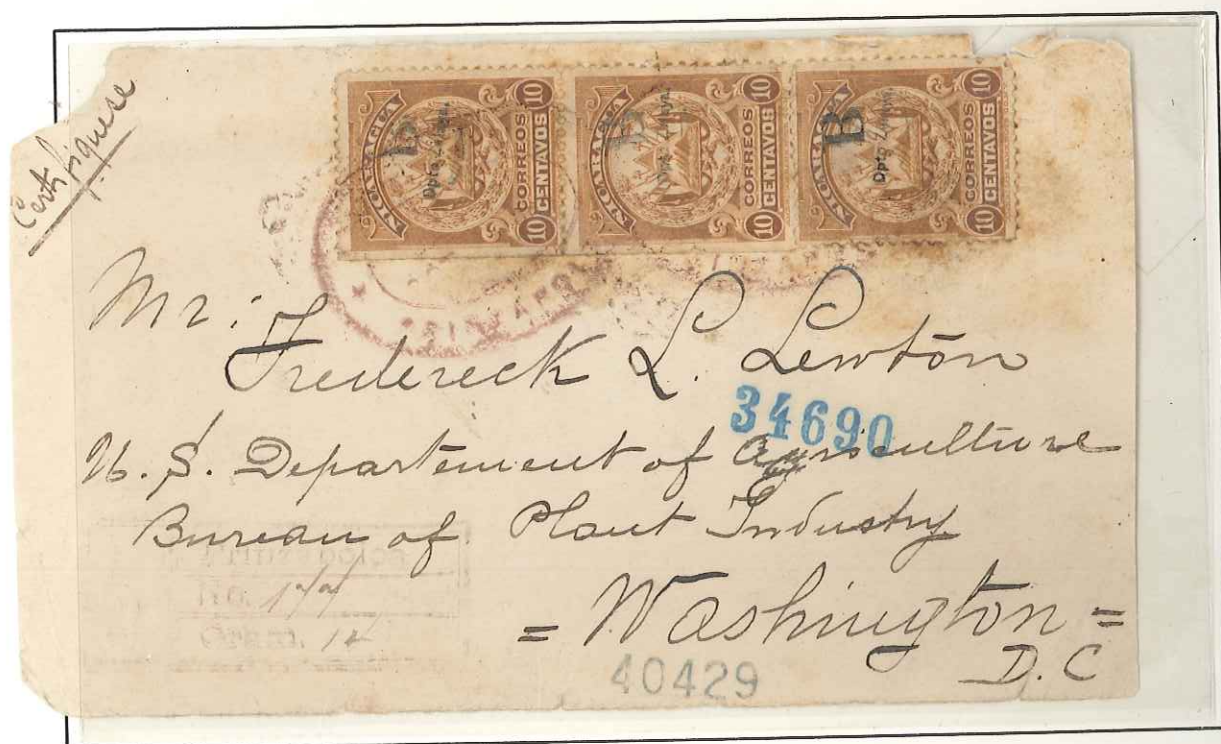 NICARAGUA
CORREOS
10 CENTAVOS 10
B
Dpto Zelaya
NICARAGUA
CORREOS
10 CENTAVOS 10
B
Dpto Zelaya
NICARAGUA
CORREOS
10 CENTAVOS 10
B
Dpto Zelaya
Mr:
Fredereck L. Lewtōn
34690
U. S. Departement of Agriculture
Bureau of Plant Industry
No.
Gram. 12
= Washington =
D. C
40429